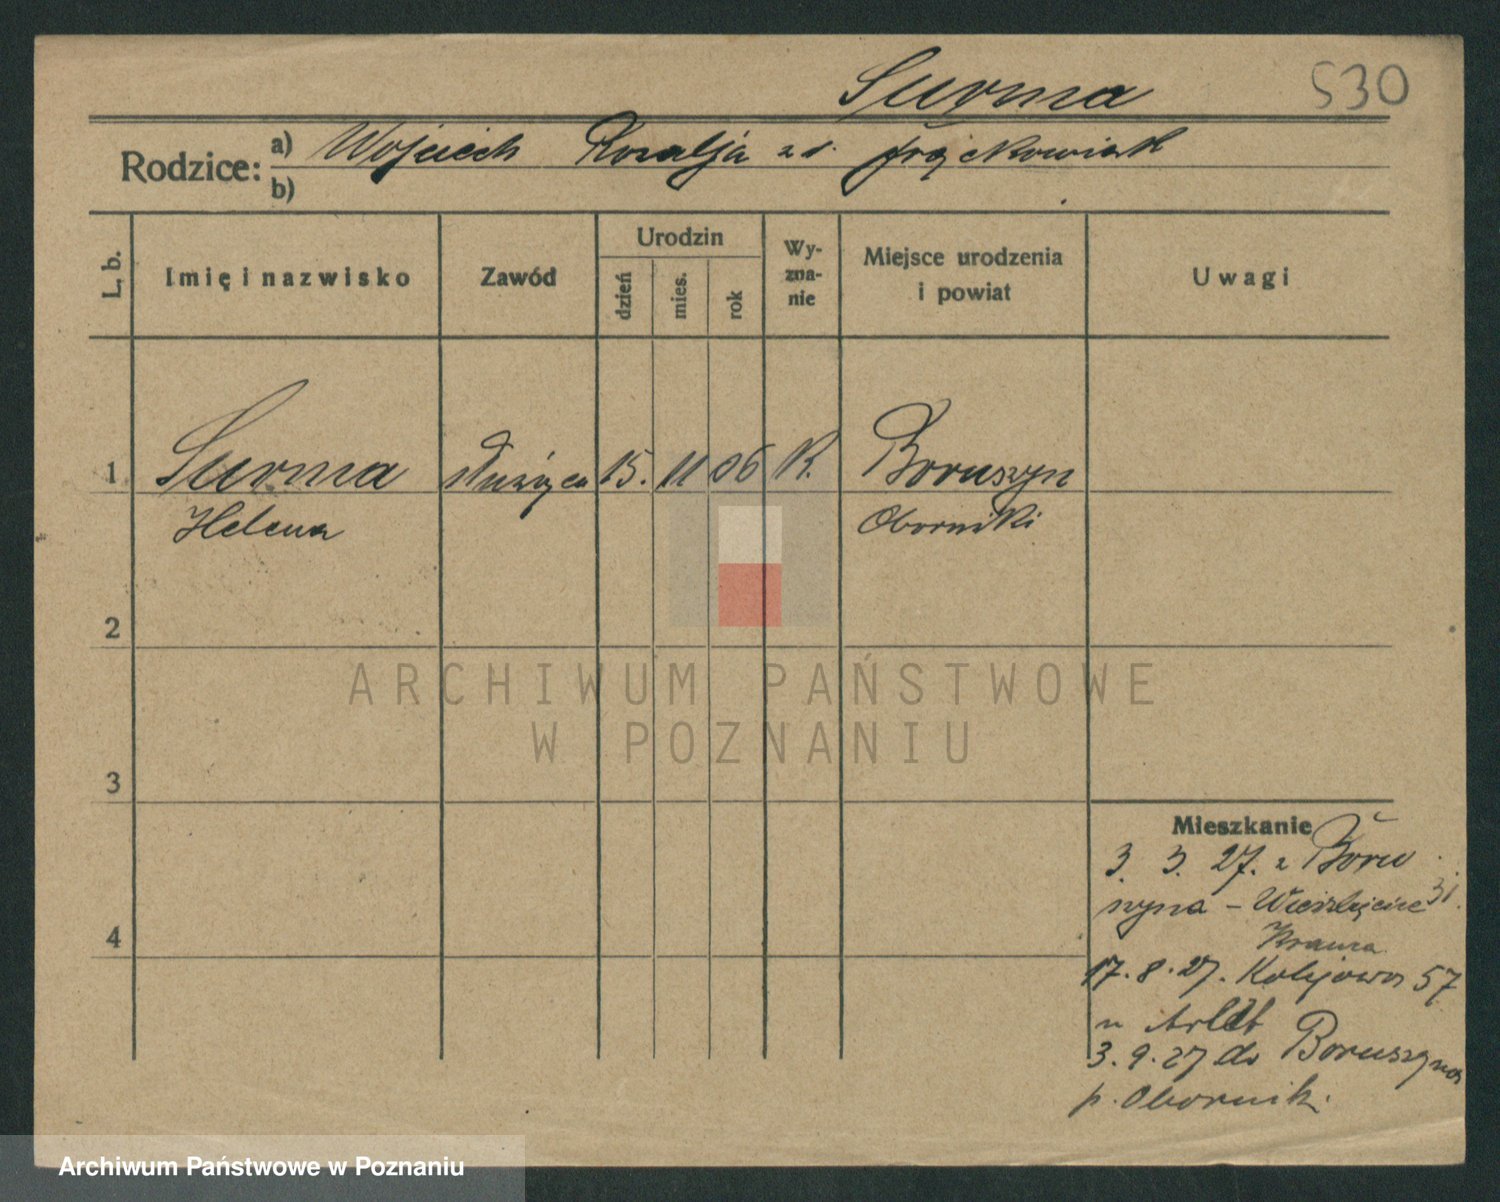 Surma 530
Rodzice: a) Wojciech Rozalja z d. Frąckowiak
b)
L. b. Imię i nazwisko Zawód Urodzin dzień mies. rok Wy-zna-nie Miejsce urodzenia i powiat Uwagi
1 Surma służąca 15. 11 06 R. Boruszyn
Helena Oborniki
2
3
4
Mieszkanie
3. 3. 27. z Boru
szyna - 31.
17. 8. 27. Kolejowa 57
u Arldt
3. 9. 27 do Boruszyna
p. Obornik.
ARCHIWUM PAŃSTWOWE
W POZNANIU
Archiwum Państwowe w Poznaniu